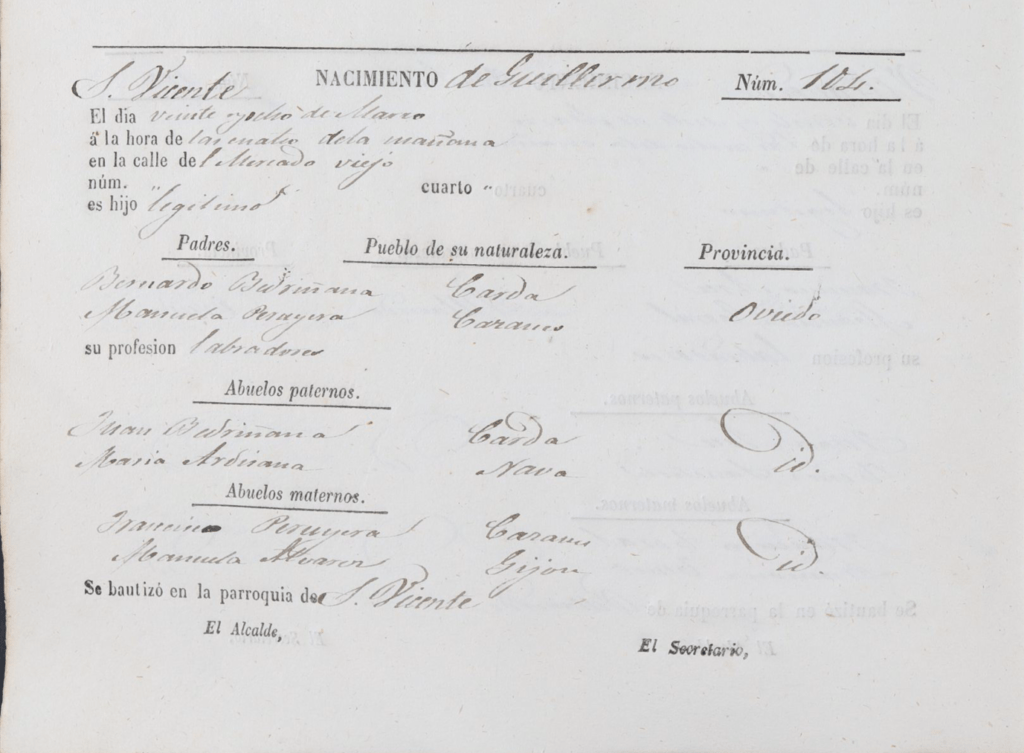 S. Vicente NACIMIENTO de Guillermo Núm. 104.
El dia veinte y ocho de Marzo
á la hora de las cuatro de la mañana
en la calle del Mercado viejo
núm. " cuarto "
es hijo legitimo
Padres. Pueblo de su naturaleza. Provincia.
Bernardo Bedriñana Carda
Manuela Peruyera Caranes Oviedo
su profesion labradores
Abuelos paternos.
Juan Bedriñana Carda
Maria Ardisana Nava id.
Abuelos maternos.
Francisco Peruyera Caranes
Manuela Alvarez Gijon id.
Se bautizó en la parroquia de S. Vicente
El Alcalde,
El Secretario,